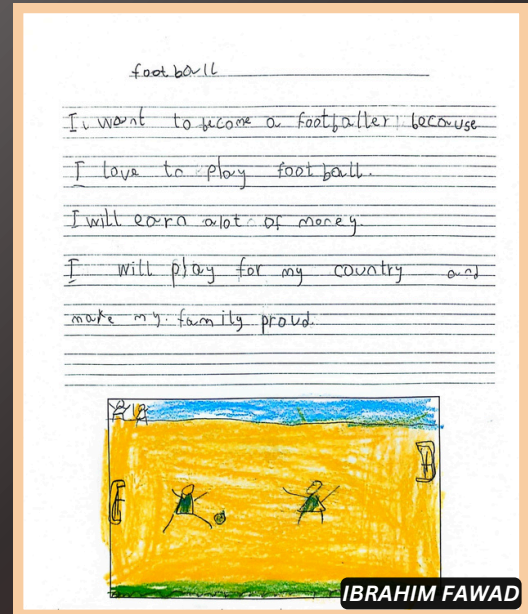 football
I want to become a footballer because
I love to play football.
I will earn alot of money.
I will play for my country and
make my family proud.
IBRAHIM FAWAD